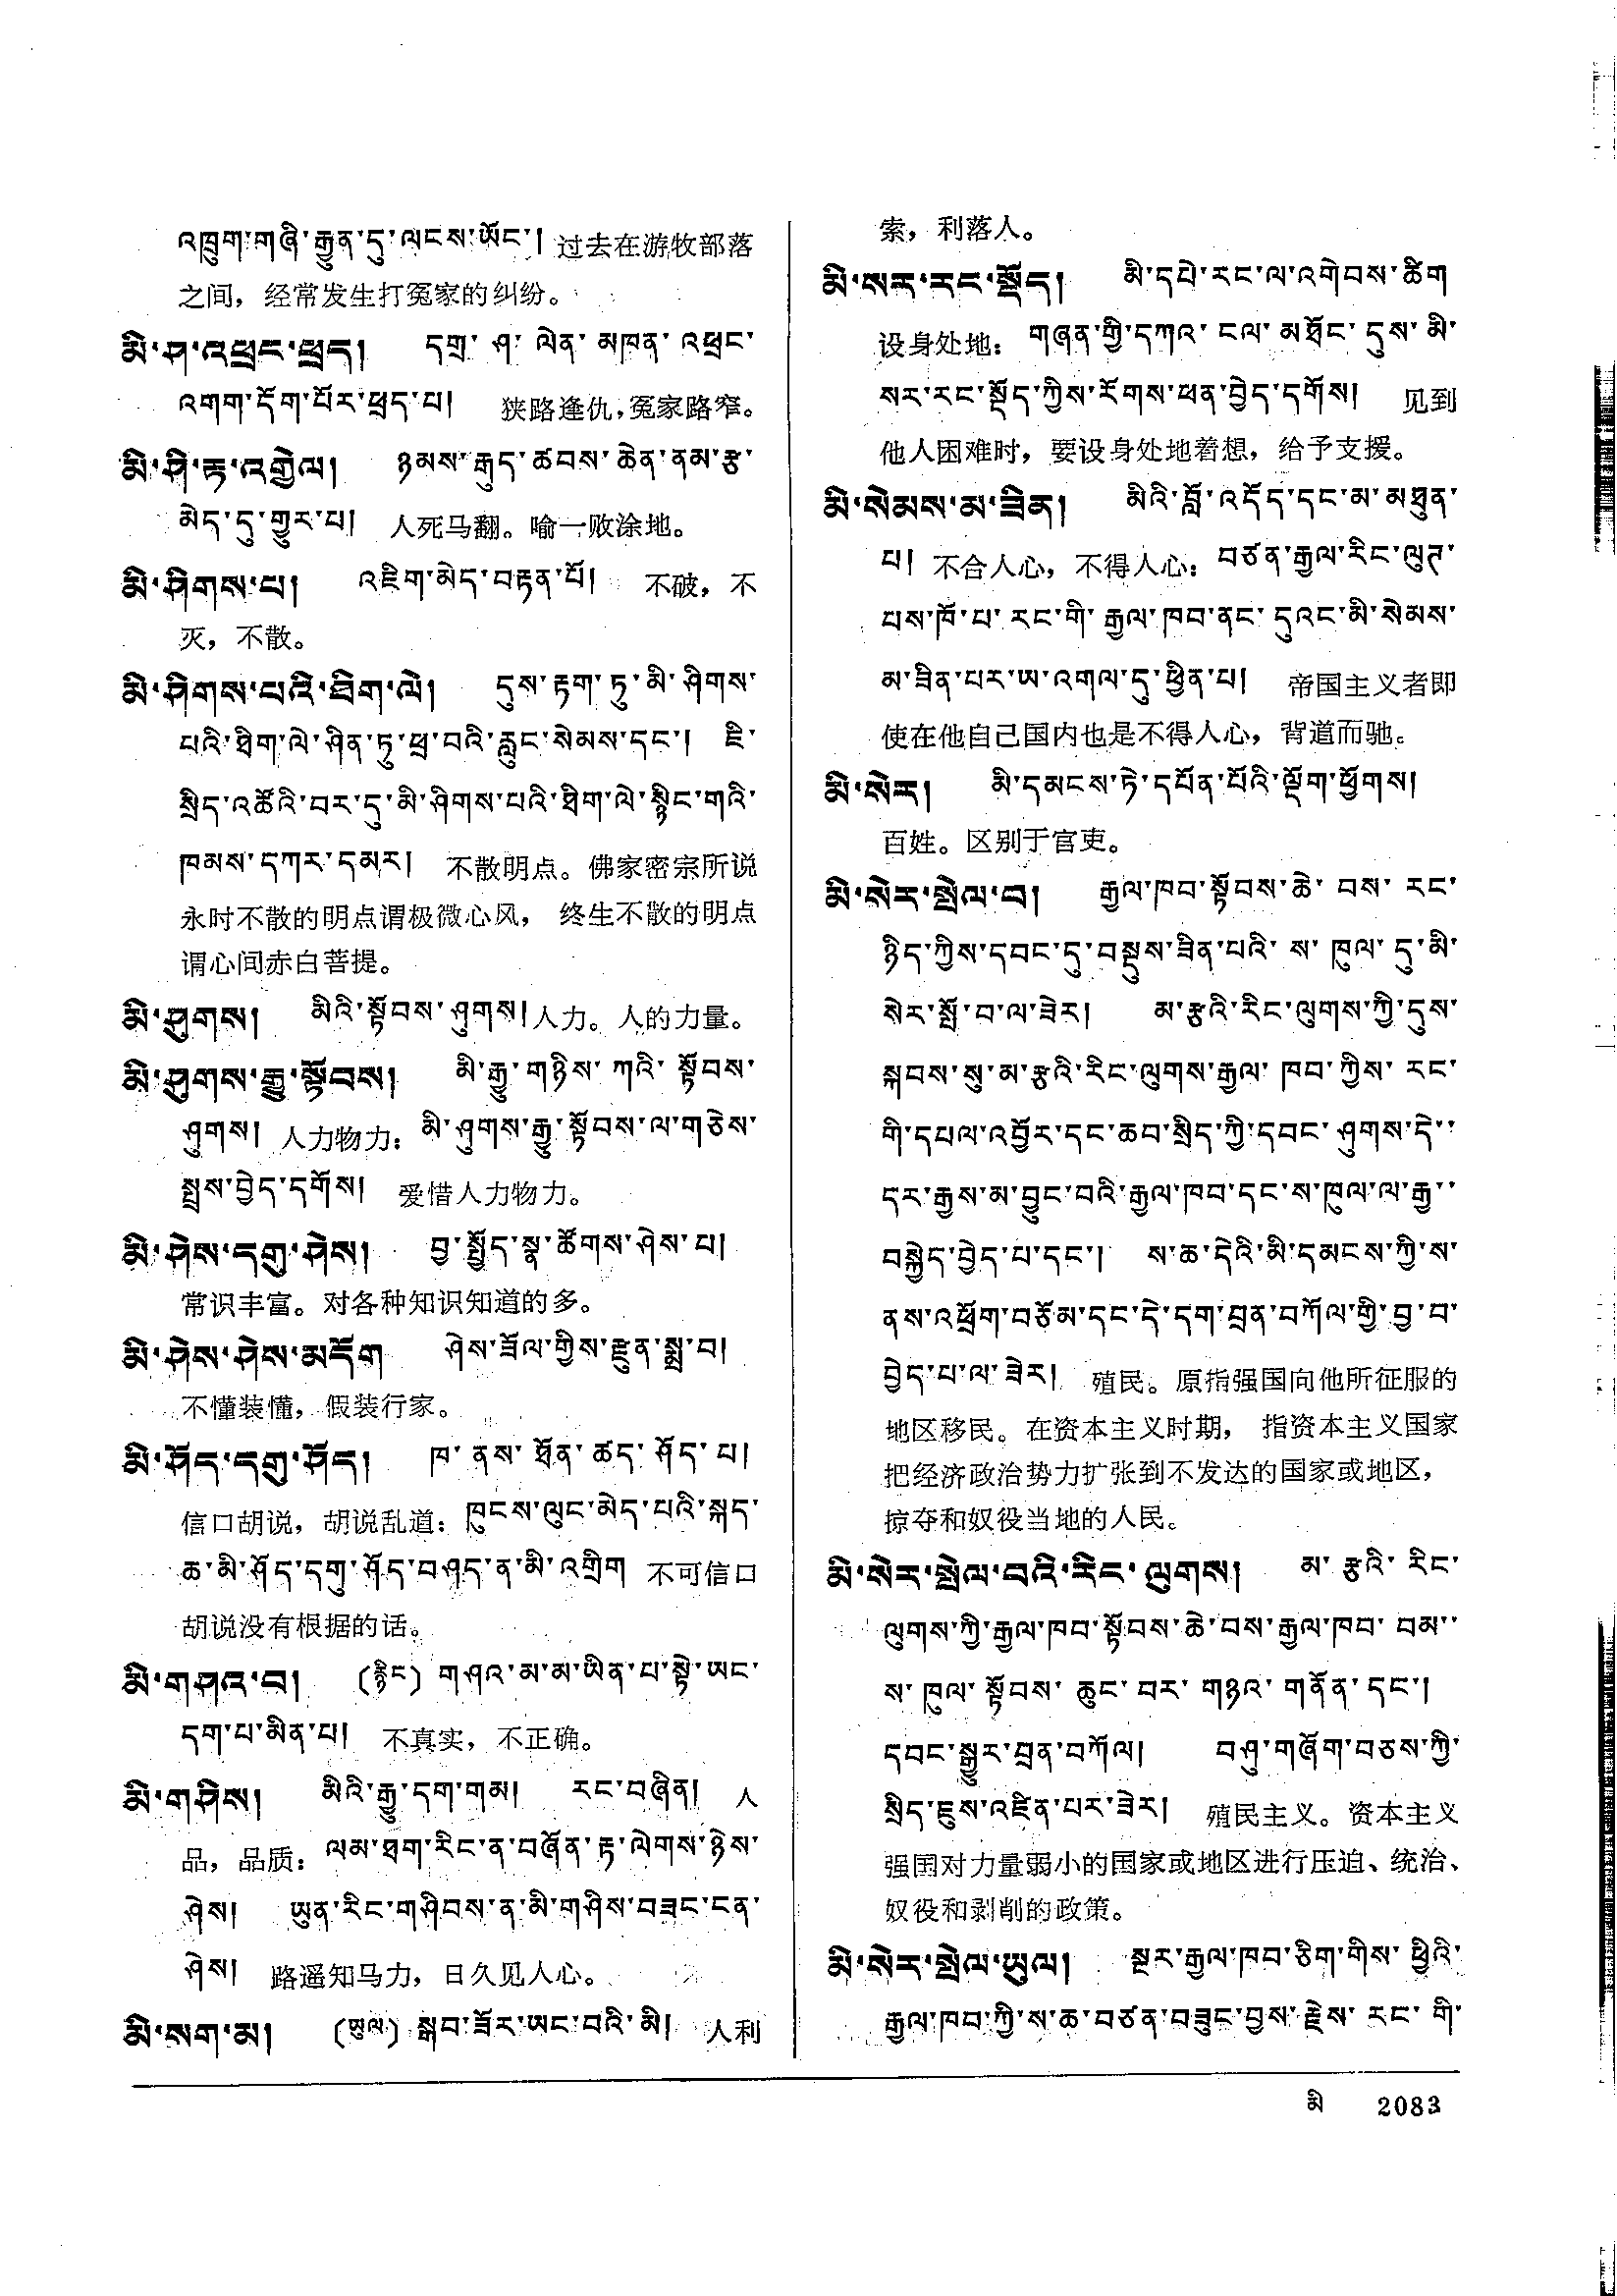 འཁྲུག་གཞི་རྒྱུན་དུ་ལངས་ཡོང་། 过去在游牧部落
之间，经常发生打冤家的纠纷。
མི་ཤ་འཕྲང་ཕྲད། དགྲ་ ཤ་ ལེན་ མཁན་ འཕྲང་
འགག་དོག་པོར་ཕྲད་པ། 狭路逢仇，冤家路窄。
མི་ཤི་རྟ་འགྱེལ། ཉམས་རྒུད་ཚབས་ཆེན་ནམ་རྩ་
མེད་དུ་གྱུར་པ། 人死马翻。喻一败涂地。
མི་ཤིགས་པ། འཇིག་མེད་བརྟན་པོ། 不破，不
灭，不散。
མི་ཤིགས་པའི་ཐིག་ལེ། དུས་རྟག་ཏུ་མི་ཤིགས་
པའི་ཐིག་ལེ་ཤིན་ཏུ་ཕྲ་བའི་རླུང་སེམས་དང་། ཇི་
སྲིད་འཚོའི་བར་དུ་མི་ཤིགས་པའི་ཐིག་ལེ་སྙིང་གའི་
ཁམས་དཀར་དམར། 不散明点。佛家密宗所说
永时不散的明点谓极微心风， 终生不散的明点
谓心间赤白菩提。
མི་ཤུགས། མིའི་སྟོབས་ཤུགས། 人力。人的力量。
མི་ཤུགས་རྒྱུ་སྟོབས། མི་རྒྱུ་གཉིས་ ཀའི་ སྟོབས་
ཤུགས། 人力物力： མི་ཤུགས་རྒྱུ་སྟོབས་ལ་གཅེས་
སྤྲས་བྱེད་དགོས། 爱惜人力物力。
མི་ཤེས་དགུ་ཤེས། བྱ་སྤྱོད་སྣ་ཚོགས་ཤེས་པ།
常识丰富。对各种知识知道的多。
མི་ཤེས་ཤེས་མདོག ཤེས་ཟོལ་གྱིས་རྫུན་སྨྲ་བ།
不懂装懂，假装行家。
མི་ཤོད་དགུ་ཤོད། ཁ་ ནས་ ཐོན་ ཚད་ ཤོད་ པ།
信口胡说，胡说乱道： ཁུངས་ལུང་མེད་པའི་སྐད་
ཆ་མི་ཤོད་དགུ་ཤོད་བཤད་ན་མི་འགྲིག 不可信口
胡说没有根据的话。
མི་གཤའ་བ། (རྙིང) གཤའ་མ་མ་ཡིན་པ་སྟེ་ཡང་
དག་པ་མིན་པ། 不真实，不正确。
མི་གཤིས། མིའི་རྒྱུ་དག་གམ། རང་བཞིན། 人
品，品质： ལམ་ཐག་རིང་ན་བཞོན་རྟ་ལེགས་ཉེས་
ཤེས། ཡུན་རིང་གཤིབས་ན་མི་གཤིས་བཟང་ངན་
ཤེས། 路遥知马力，日久见人心。
མི་སག་མ། (ཡུལ) སྒྲབ་ཟོར་ཡང་བའི་མི། 人利
索，利落人。
མི་སར་རང་སྡོད། མི་དཔེ་རང་ལ་འགེབས་ཚིག
设身处地： གཞན་གྱི་དཀའ་ ངལ་ མཐོང་ དུས་ མི་
སར་རང་སྡོད་ཀྱིས་རོགས་ཕན་བྱེད་དགོས། 见到
他人困难时，要设身处地着想，给予支援。
མི་སེམས་མ་ཟིན། མིའི་བློ་འདོད་དང་མ་མཐུན་
པ། 不合人心，不得人心： བཙན་རྒྱལ་རིང་ལུཊ་
པས་ཁོ་པ་ རང་གི་ རྒྱལ་ཁབ་ནང་ དུའང་མི་སེམས་
མ་ཟིན་པར་ཡ་འགལ་དུ་ཕྱིན་པ། 帝国主义者即
使在他自己国内也是不得人心，背道而驰。
མི་སེར། མི་དམངས་ཏེ་དཔོན་པོའི་ལྡོག་ཕྱོགས།
百姓。区别于官吏。
མི་སེར་སྤེལ་བ། རྒྱལ་ཁབ་སྟོབས་ཆེ་ བས་ རང་
ཉིད་ཀྱིས་དབང་དུ་བསྡུས་ཟིན་པའི་ ས་ ཁུལ་ དུ་མི་
སེར་སྤོ་བ་ལ་ཟེར། མ་རྩའི་རིང་ལུགས་ཀྱི་དུས་
སྐབས་སུ་མ་རྩའི་རིང་ལུགས་རྒྱལ་ ཁབ་ཀྱིས་ རང་
གི་དཔལ་འབྱོར་དང་ཆབ་སྲིད་ཀྱི་དབང་ཤུགས་དེ་་
དར་རྒྱས་མ་བྱུང་བའི་རྒྱལ་ཁབ་དང་ས་ཁུལ་ལ་རྒྱ་་
བསྐྱེད་བྱེད་པ་དང་། ས་ཆ་དེའི་མི་དམངས་ཀྱི་ས་
ནས་འཕྲོག་བཅོམ་དང་དེ་དག་བྲན་བཀོལ་གྱི་བྱ་བ་
བྱེད་པ་ལ་ཟེར། 殖民。原指强国向他所征服的
地区移民。在资本主义时期， 指资本主义国家
把经济政治势力扩张到不发达的国家或地区，
掠夺和奴役当地的人民。
མི་སེར་སྤེལ་བའི་རིང་ལུགས། མ་ རྩའི་ རིང་
ལུགས་ཀྱི་རྒྱལ་ཁབ་སྟོབས་ཆེ་བས་རྒྱལ་ཁབ་ བམ་་
ས་ ཁུལ་ སྟོབས་ ཆུང་ བར་ གཉའ་ གནོན་ དང་།
དབང་སྒྱུར་བྲན་བཀོལ། བཤུ་གཞོག་བཅས་ཀྱི་
སྲིད་ཇུས་འཛིན་པར་ཟེར། 殖民主义。资本主义
强国对力量弱小的国家或地区进行压迫、统治、
奴役和剥削的政策。
མི་སེར་སྤེལ་ཡུལ། སྔར་རྒྱལ་ཁབ་ཅིག་གིས་ ཕྱིའི་
རྒྱལ་ཁབ་ཀྱི་ས་ཆ་བཙན་བཟུང་བྱས་རྗེས་ རང་ གི་
མི 2083